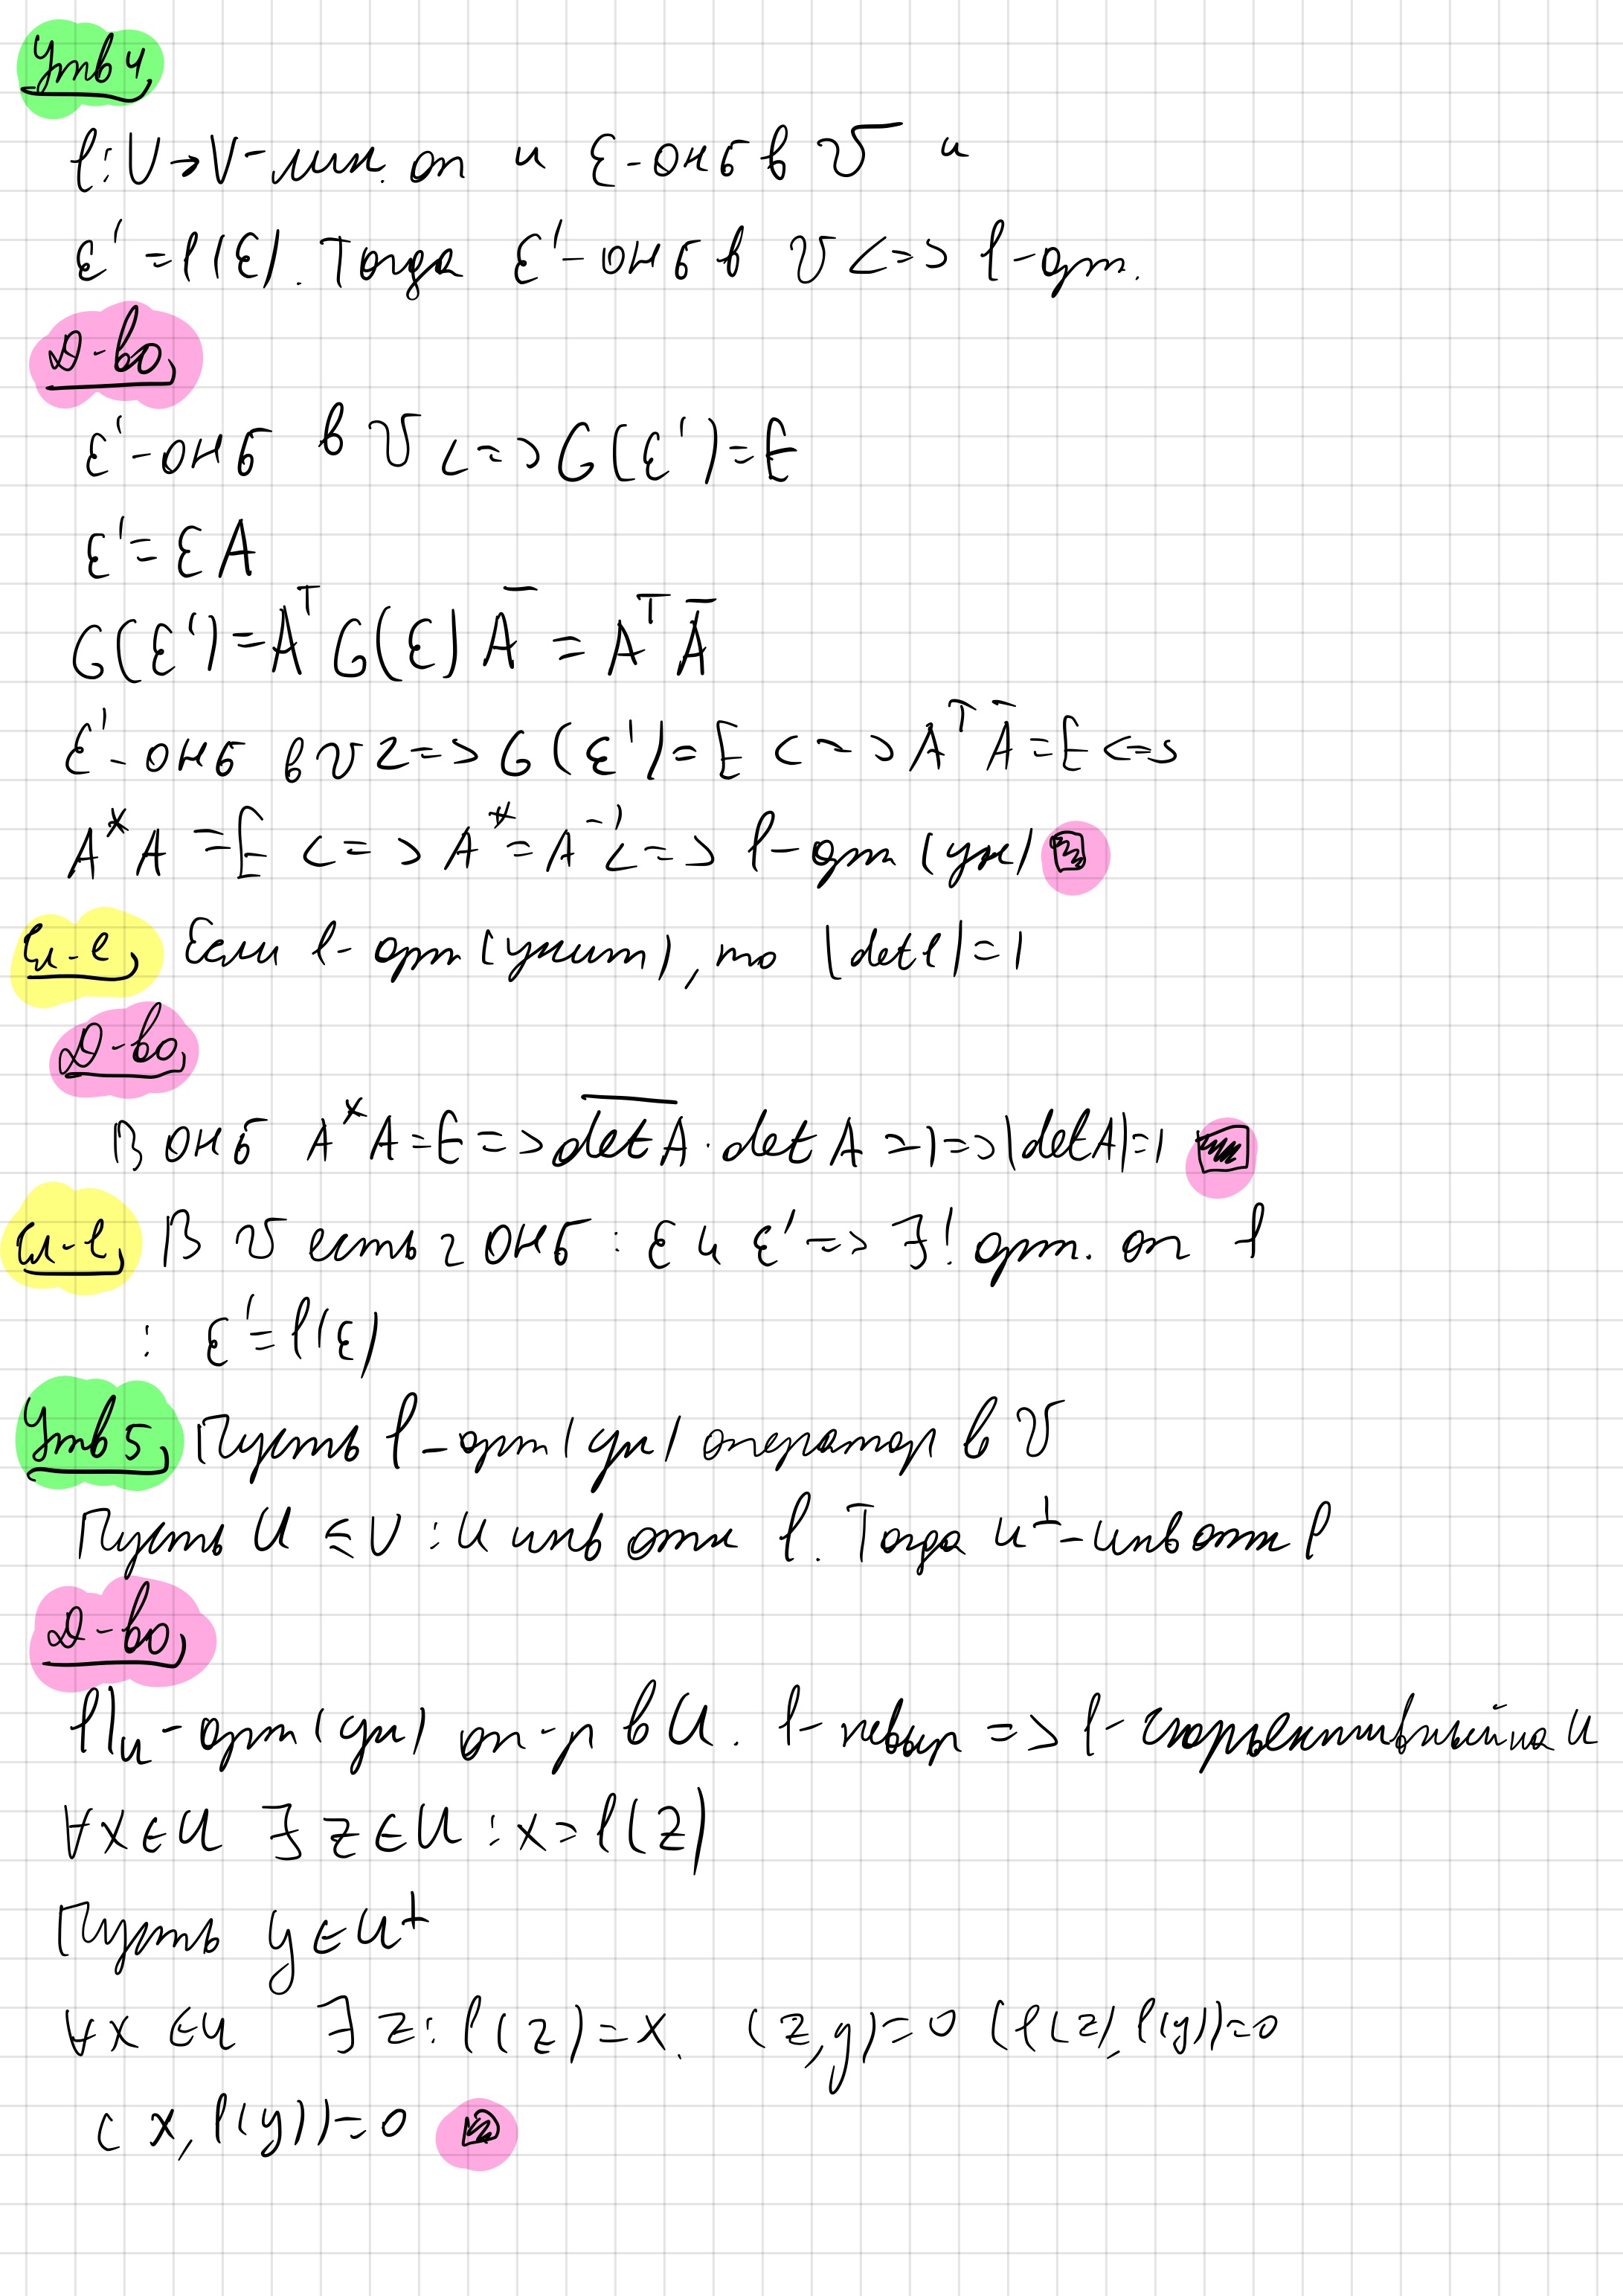 Утв 4.
f: V → V - лин. оп и ℰ - ОНБ в V и
ℰ' = f(ℰ). Тогда ℰ' - ОНБ в V <=> f - орт.
Д-во.
ℰ' - ОНБ в V <=> G(ℰ') = E
ℰ' = ℰA
G(ℰ') = Aᵀ G(ℰ) Ā = Aᵀ Ā
ℰ' - ОНБ в V <=> G(ℰ') = E <=> Aᵀ Ā = E <=>
A* A = E <=> A* = A⁻¹ <=> f - орт (ун)
Сл-е. Если f - орт (унит), то |det f| = 1
Д-во.
В ОНБ A* A = E => \overline{det A} · det A = 1 => |det A| = 1
Сл-е. В V есть 2 ОНБ : ℰ и ℰ' => ∃! орт. оп f
: ℰ' = f(ℰ)
Утв 5. Пусть f - орт (ун) оператор в V
Пусть U ≤ V : U инв отн f. Тогда U^⊥ - инв отн f
Д-во.
f|_U - орт (ун) оп-р в U. f - невыр => f - сюръективный на U
∀x ∈ U ∃ z ∈ U : x = f(z)
Пусть y ∈ U^⊥
∀x ∈ U ∃ z : f(z) = x. (z, y) = 0 (f(z), f(y)) = 0
(x, f(y)) = 0